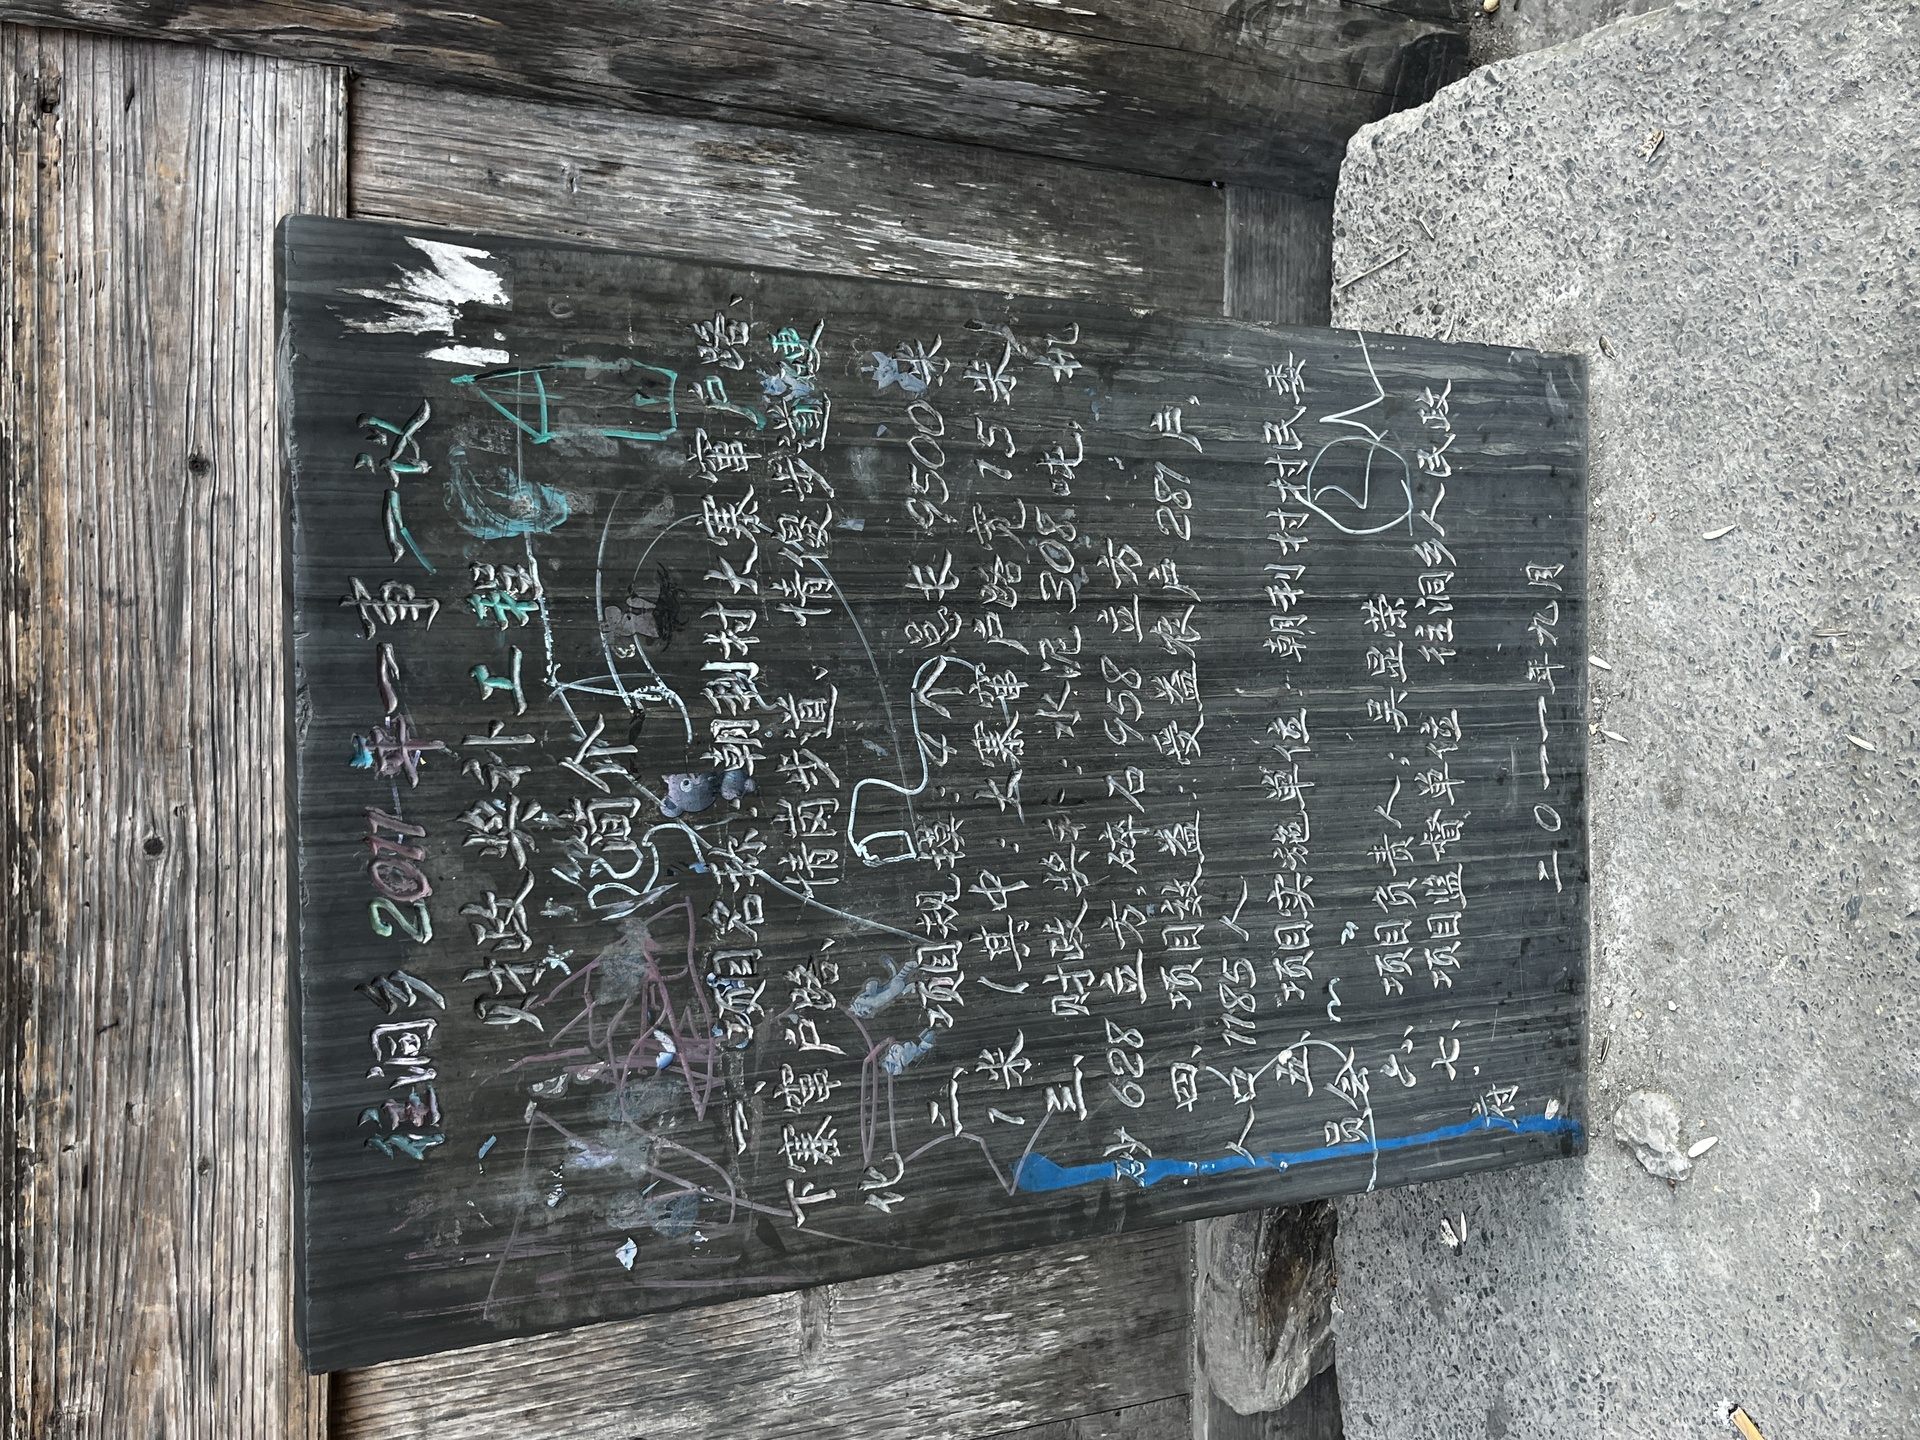 往洞乡2011年一事一议
财政奖补工程
简介
一、项目名称:朝利村大寨串户路、
下寨串户路、情岗步道、情俊步道硬
化
二、项目规模:4个 总长9500米
1米(其中:大寨串户路宽15米
三、财政奖补:水泥308吨,机
砂628立方,碎石958立方.
四、项目效益:受益农户287户,
人口1185人
五、项目实施单位:朝利村村民委
员会
六、项目负责人:吴显荣
七、项目监督单位:往洞乡人民政
府
二0一一年九月